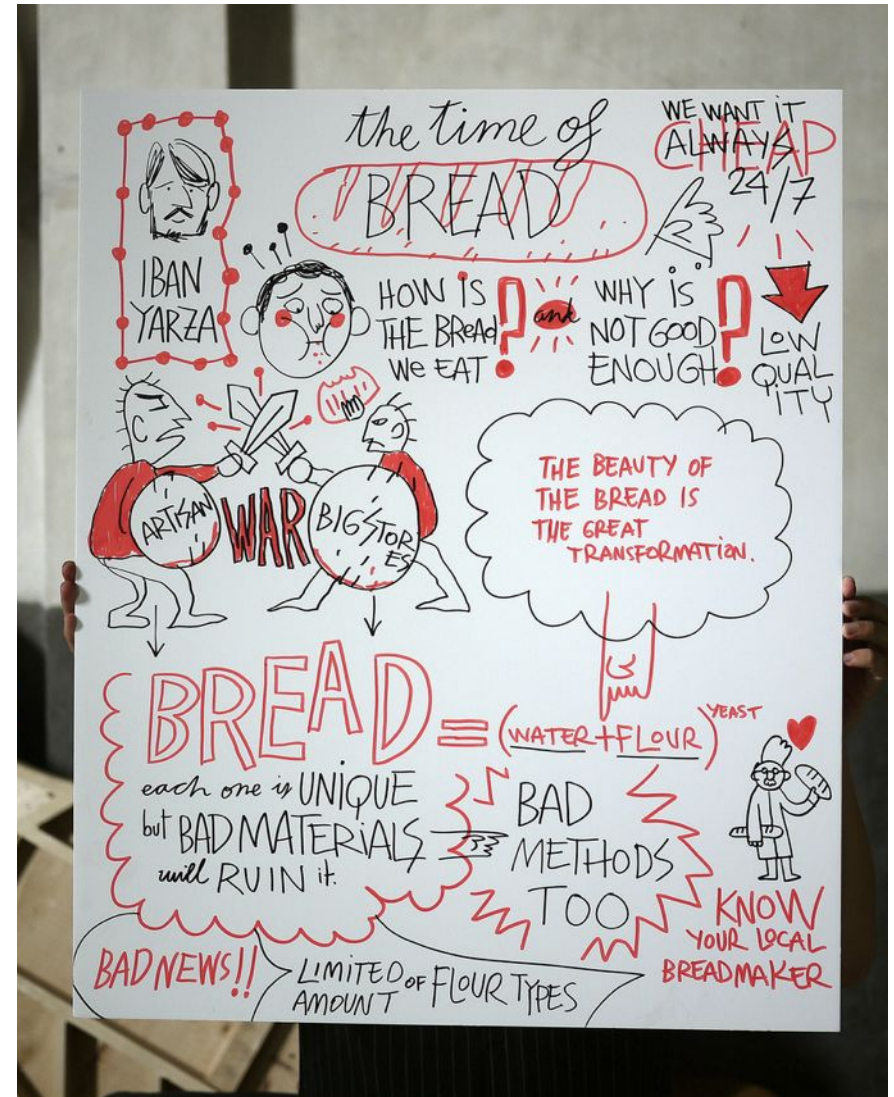 the time of
BREAD
IBAN
YARZA
WE WANT IT
CHEAP
ALWAYS
24/7
LOW
QUAL
ITY
HOW IS
THE BREAD
WE EAT ?
and
WHY IS
NOT GOOD
ENOUGH ?
ARTISAN
WAR
BIG STOR
ES
THE BEAUTY OF
THE BREAD IS
THE GREAT
TRANSFORMATION.
BREAD = (WATER + FLOUR) YEAST
each one is UNIQUE
but BAD MATERIALS
will RUIN it.
BAD
METHODS
TOO
KNOW
YOUR LOCAL
BREADMAKER
BAD NEWS!!
LIMITED OF FLOUR TYPES
AMOUNT